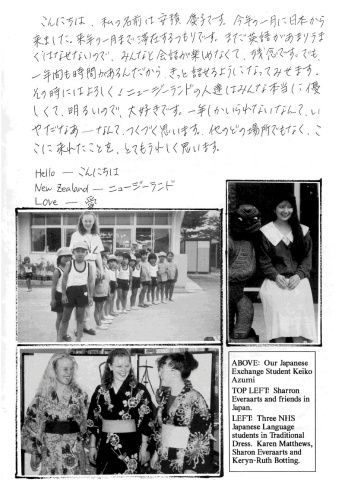 こんにちは、私の名前は安積 慶子です。今年の一月に日本から
来ました。来年の一月まで滞在するつもりです。まだ英語があまりうま
くはなせないので、みんなと会話が楽しめなくて、残念です。でも、
一年間も時間があるんだから、きっと話せるようになってみせます。
その時にはよろしく！ニュージーランドの人達はみんな本当に優
しくて、明るいので、大好きです。一年しかいられないなんて、い
やだなあーなんて、つくづく思います。他のどの場所でもなく、こ
こに来れたことを、とてもうれしく思います。
Hello — こんにちは
New Zealand — ニュージーランド
Love — 愛
ABOVE: Our Japanese
Exchange Student Keiko
Azumi
TOP LEFT: Sharron
Everaarts and friends in
Japan.
LEFT: Three NHS
Japanese Language
students in Traditional
Dress. Karen Matthews,
Sharon Everaarts and
Keryn-Ruth Botting.